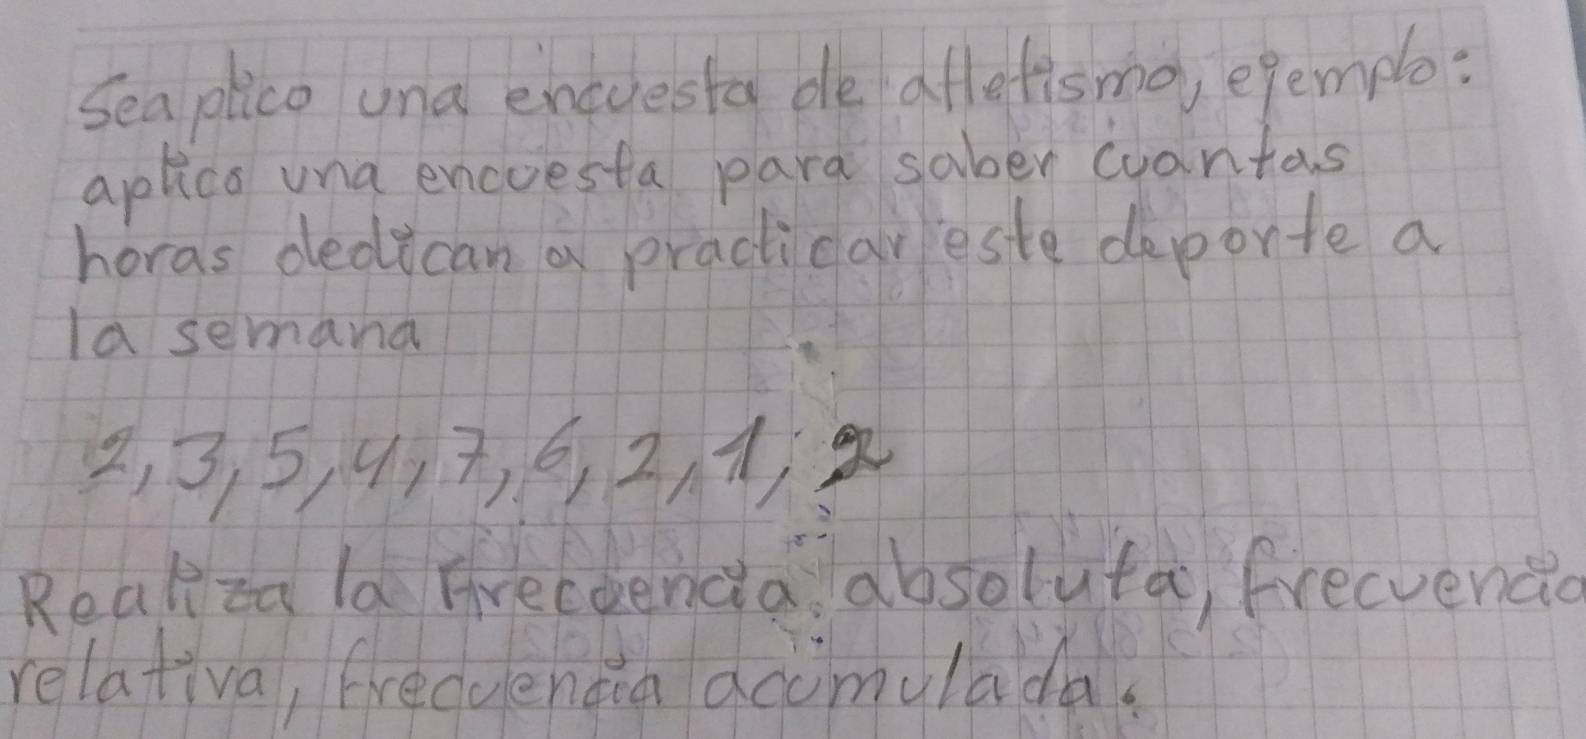 Se aplico una encuesta de atletismo, ejemplo:
aplico una encuesta para saber cuantas
horas dedican a practicar este deporte a
la semana
2, 3, 5, 4, 7, 6, 2, 1, 2
Realiza la Frecuencia absoluta, frecuencia
relativa, frecuencia acumulada.